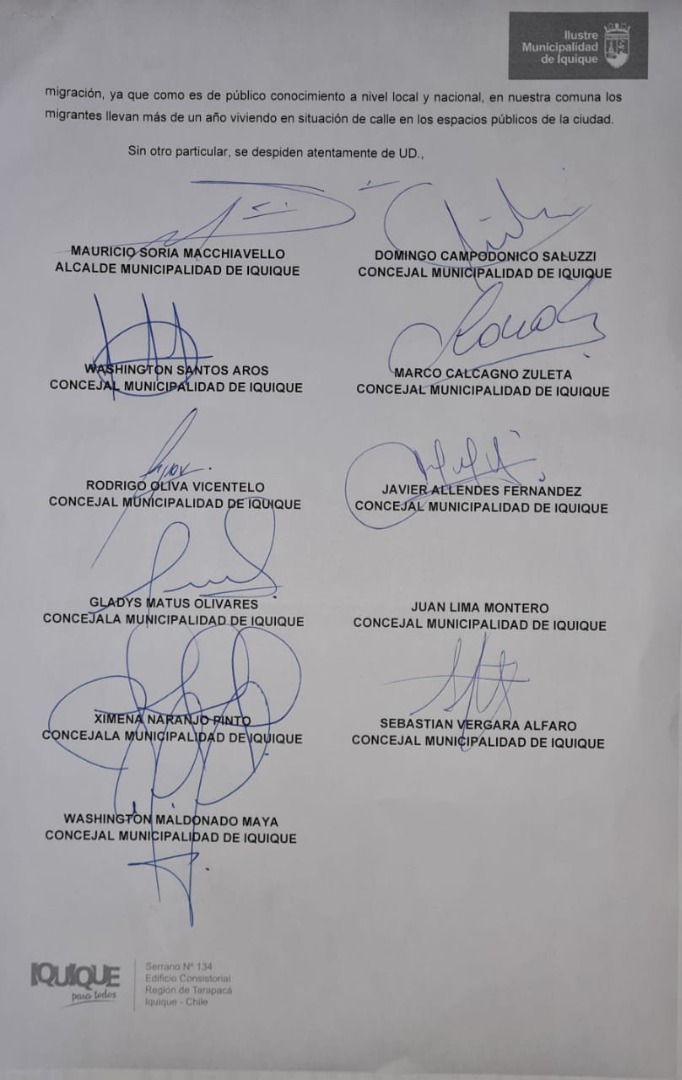 Ilustre
Municipalidad
de Iquique
migración, ya que como es de público conocimiento a nivel local y nacional, en nuestra comuna los
migrantes llevan más de un año viviendo en situación de calle en los espacios públicos de la ciudad.
Sin otro particular, se despiden atentamente de UD.,
MAURICIO SORIA MACCHIAVELLO
ALCALDE MUNICIPALIDAD DE IQUIQUE
DOMINGO CAMPODONICO SALUZZI
CONCEJAL MUNICIPALIDAD DE IQUIQUE
WASHINGTON SANTOS AROS
CONCEJAL MUNICIPALIDAD DE IQUIQUE
MARCO CALCAGNO ZULETA
CONCEJAL MUNICIPALIDAD DE IQUIQUE
RODRIGO OLIVA VICENTELO
CONCEJAL MUNICIPALIDAD DE IQUIQUE
JAVIER ALLENDES FERNÁNDEZ
CONCEJAL MUNICIPALIDAD DE IQUIQUE
GLADYS MATUS OLIVARES
CONCEJALA MUNICIPALIDAD DE IQUIQUE
JUAN LIMA MONTERO
CONCEJAL MUNICIPALIDAD DE IQUIQUE
XIMENA NARANJO PINTO
CONCEJALA MUNICIPALIDAD DE IQUIQUE
SEBASTIAN VERGARA ALFARO
CONCEJAL MUNICIPALIDAD DE IQUIQUE
WASHINGTON MALDONADO MAYA
CONCEJAL MUNICIPALIDAD DE IQUIQUE
IQUIQUE
para todos
Serrano Nº 134
Edificio Consistorial
Región de Tarapacá
Iquique - Chile